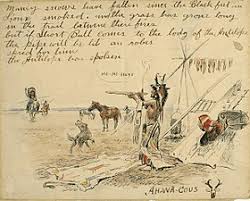 Many snows have fallen since the Blackfeet in
Lodge smoked, and the grass has grown long
in the trail between their fires
but if Short Bull comes to the lodge of the Antelope
the pipe will be lit an robes
spred for him
the Antelope has spoken
AHANA-COUS